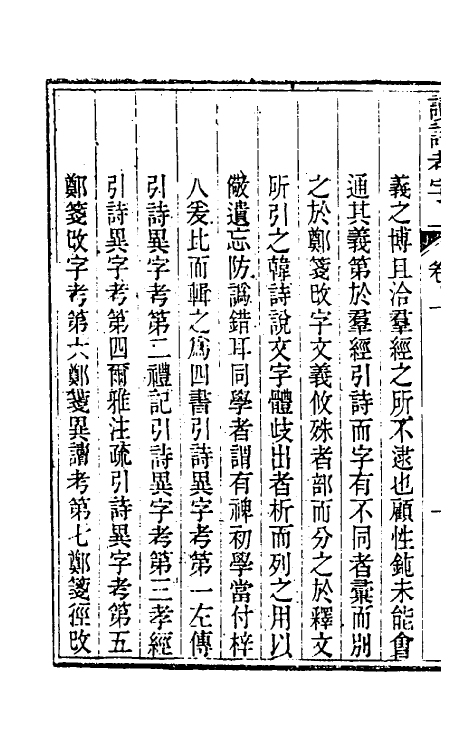 讀詩考字 卷一 一
義之博且洽羣經之所不逮也顧性鈍未能會
通其義第於羣經引詩而字有不同者彚而別
之於鄭箋改字文義攸殊者部而分之於釋文
所引之韓詩說文字體歧出者析而列之用以
儆遺忘防譌錯耳同學者謂有裨初學當付梓
人爰比而輯之爲四書引詩異字考第一左傳
引詩異字考第二禮記引詩異字考第三孝經
引詩異字考第四爾雅注疏引詩異字考第五
鄭箋改字考第六鄭箋異讀考第七鄭箋徑改